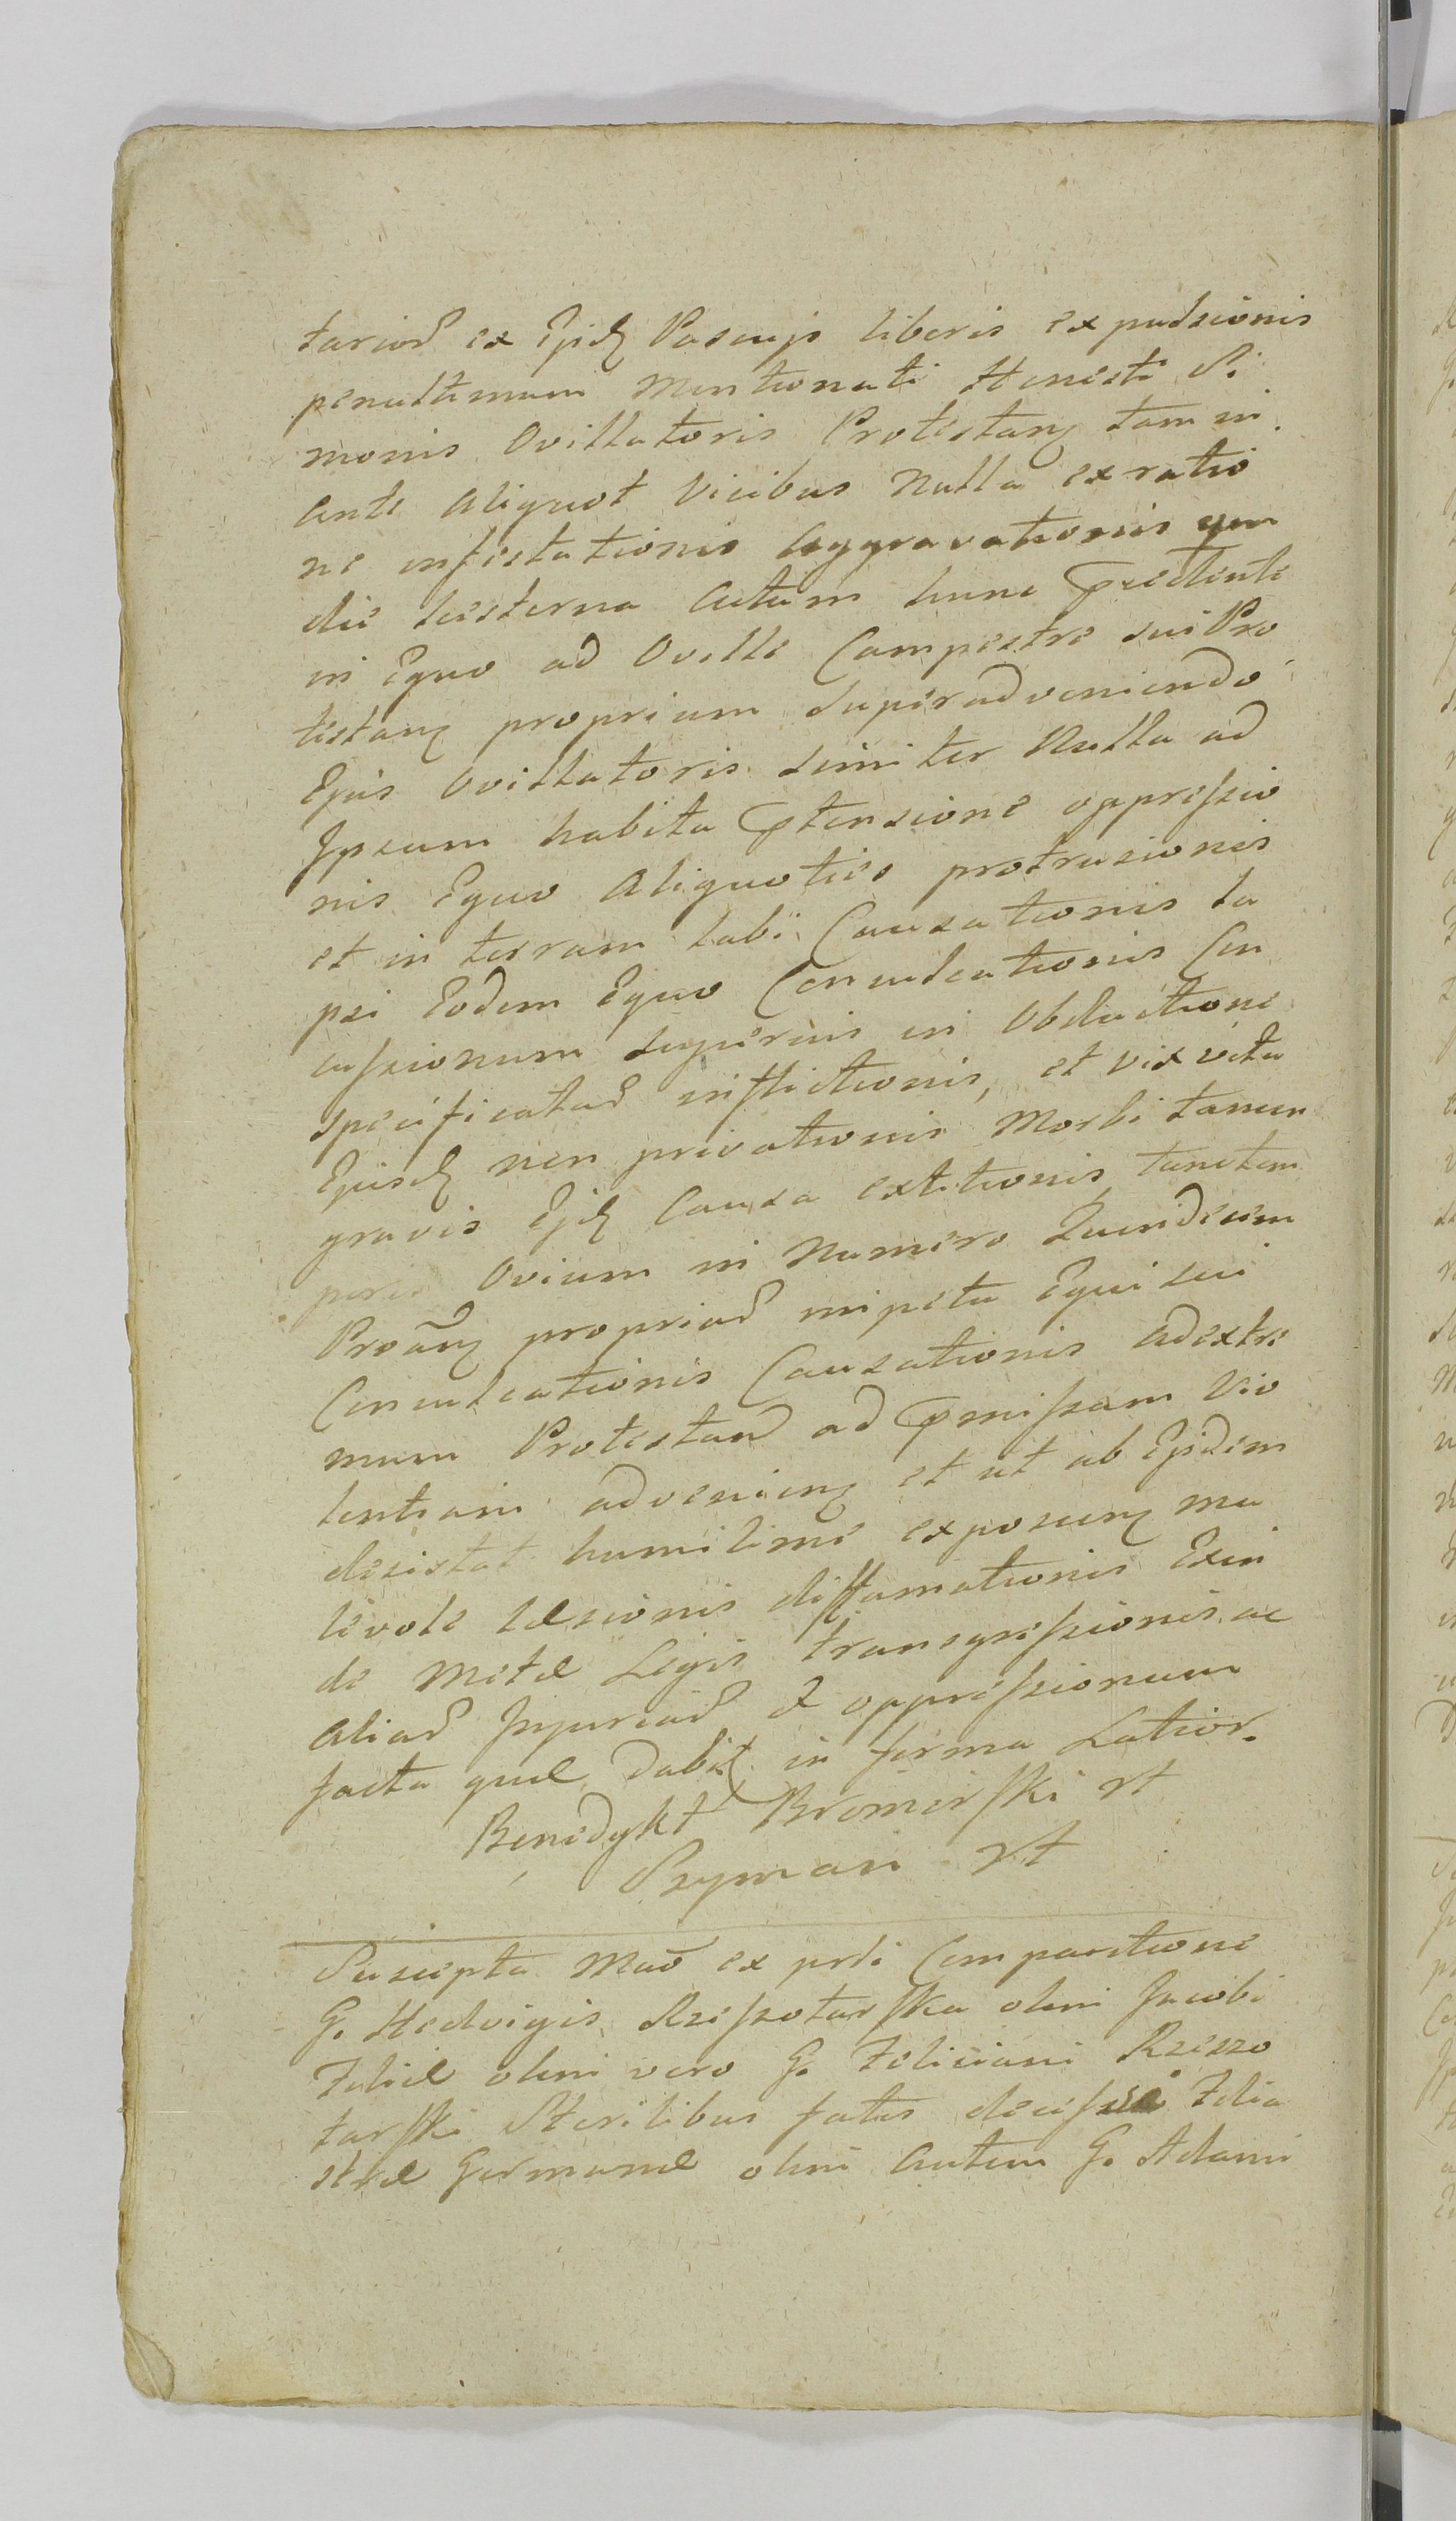 tariaʀ̄ ex Ejsdꝫ Pascujs liberis expulsionis
penultimum mentionati Honesti Si
monis Ovillatoris Protestanꝫ tam in
ante aliquot vicibus nulla ex ratio
ne infestationis aggravationis qm
die hesterna actum hunc pꝛecedenti
in Equo ad Oville Campestre sui Pro
testanꝫ proprium superadveniendo
Ejus Ovillatoris simiter Nulla ad
Ipsum habita pꝛtensione oppressio
nis Equo aliquoties protrusionis
et in terram labi Causationis la
psi Eodem Equo Conculcationis Con
cussionum superius in Obductione
specificataʀ̄ inflictionis, et vix vita
Ejusdꝫ non privationis Morbi tamen
gravis Ejsdꝫ Causa extitionis tunctem
poris Ovium in Numero Quindecim
Proānꝫ propriaʀ̄ impetu Equi sui
Conculcationis Causationis ad extre
mum Protestanꝫ ad pꝛmissam Vio
lentiam advenienꝫ et ut ab Ejsdem
desistat humilime exposcenꝫ ma
levole læsionis diffamationis Exin
de Metæ Legis transgressionis ac
aliaʀ̄ Injuriaʀ̄ & oppressionum
facta quæ dabit in forma Latior.
Benedykt Bromirski rt
Szyman rt
Suscepta Mað ex prli Comparitione
G. Hedvigis Rzeszotarska olim Jacobi
Filiæ olim vero G. Feliciani Rzeszo
tarski Sterilibus fatis decessi Filia
stræ Germanæ olim autem G. Adami